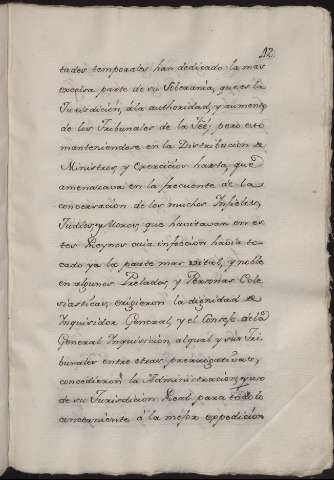 12
tades temporales han dedicado la mas
excelsa parte de su Soberania, que es la
Jurisdicion, á la authoridad, y aumento
de los Tribunales de la Feé; pero esto
manteniendose en la Distribucion de
Ministros, y Exercicios hasta que
amenazava en la frecuente de la
conservacion de los muchos Infieles,
Judios, y Moros, que havitavan en es
tos Reynos cuia infeccion havia to
cado ya la parte mas vital, y noble
en algunos Prelados, y Personas Ecle
siasticas; exigieron la dignidad de
Inquisidor General, y el Consejo de la
General Inquisicion, al qual y sus Tri
bunales entre otras prerrogativas,
concedieron la Administracion, y uso
de su Jurisdicion Real para todo lo
concerniente á la mejor expedicion